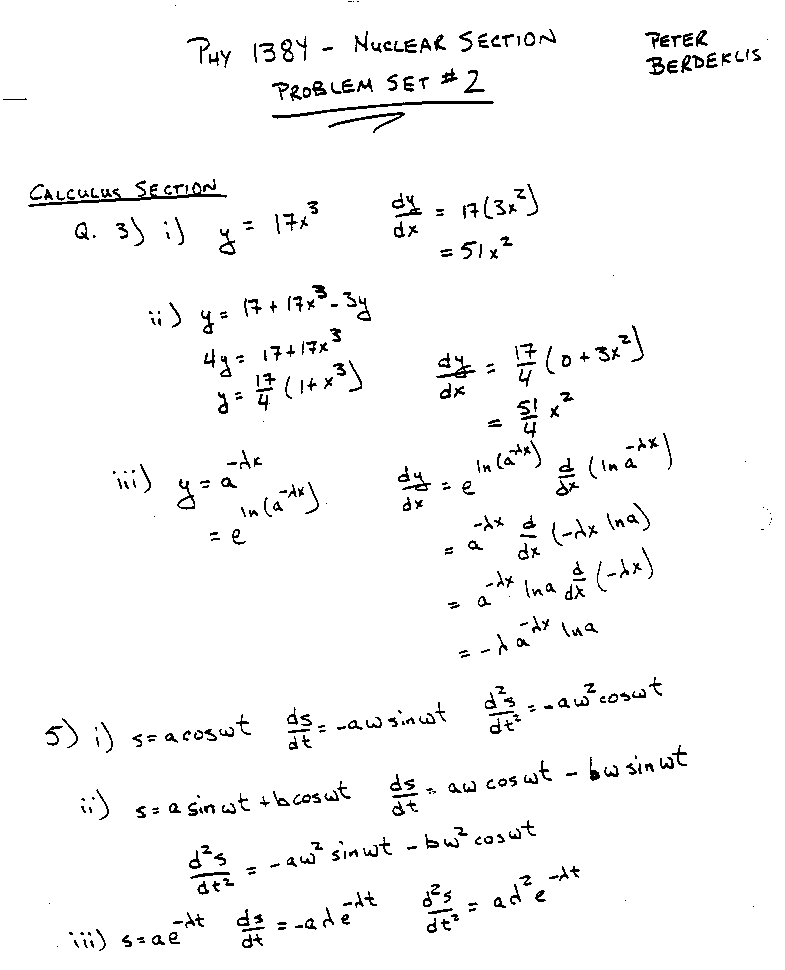 PHY 1384 - NUCLEAR SECTION PETER BERDEKLIS
PROBLEM SET #2
CALCULUS SECTION
Q. 3) i) y = 17x³ dy/dx = 17(3x²)
= 51x²
ii) y = 17 + 17x³ - 3y
4y = 17 + 17x³
y = 17/4 (1 + x³) dy/dx = 17/4 (0 + 3x²)
= 51/4 x²
iii) y = a^(-λx) dy/dx = e^(ln(a^(-λx))) d/dx (ln a^(-λx))
= e^(ln(a^(-λx))) = a^(-λx) d/dx (-λx ln a)
= a^(-λx) ln a d/dx (-λx)
= -λ a^(-λx) ln a
5) i) s = a cos ωt ds/dt = -aω sin ωt d²s/dt² = -aω² cos ωt
ii) s = a sin ωt + b cos ωt ds/dt = aω cos ωt - bω sin ωt
d²s/dt² = -aω² sin ωt - bω² cos ωt
iii) s = ae^(-λt) ds/dt = -aλe^(-λt) d²s/dt² = aλ²e^(-λt)